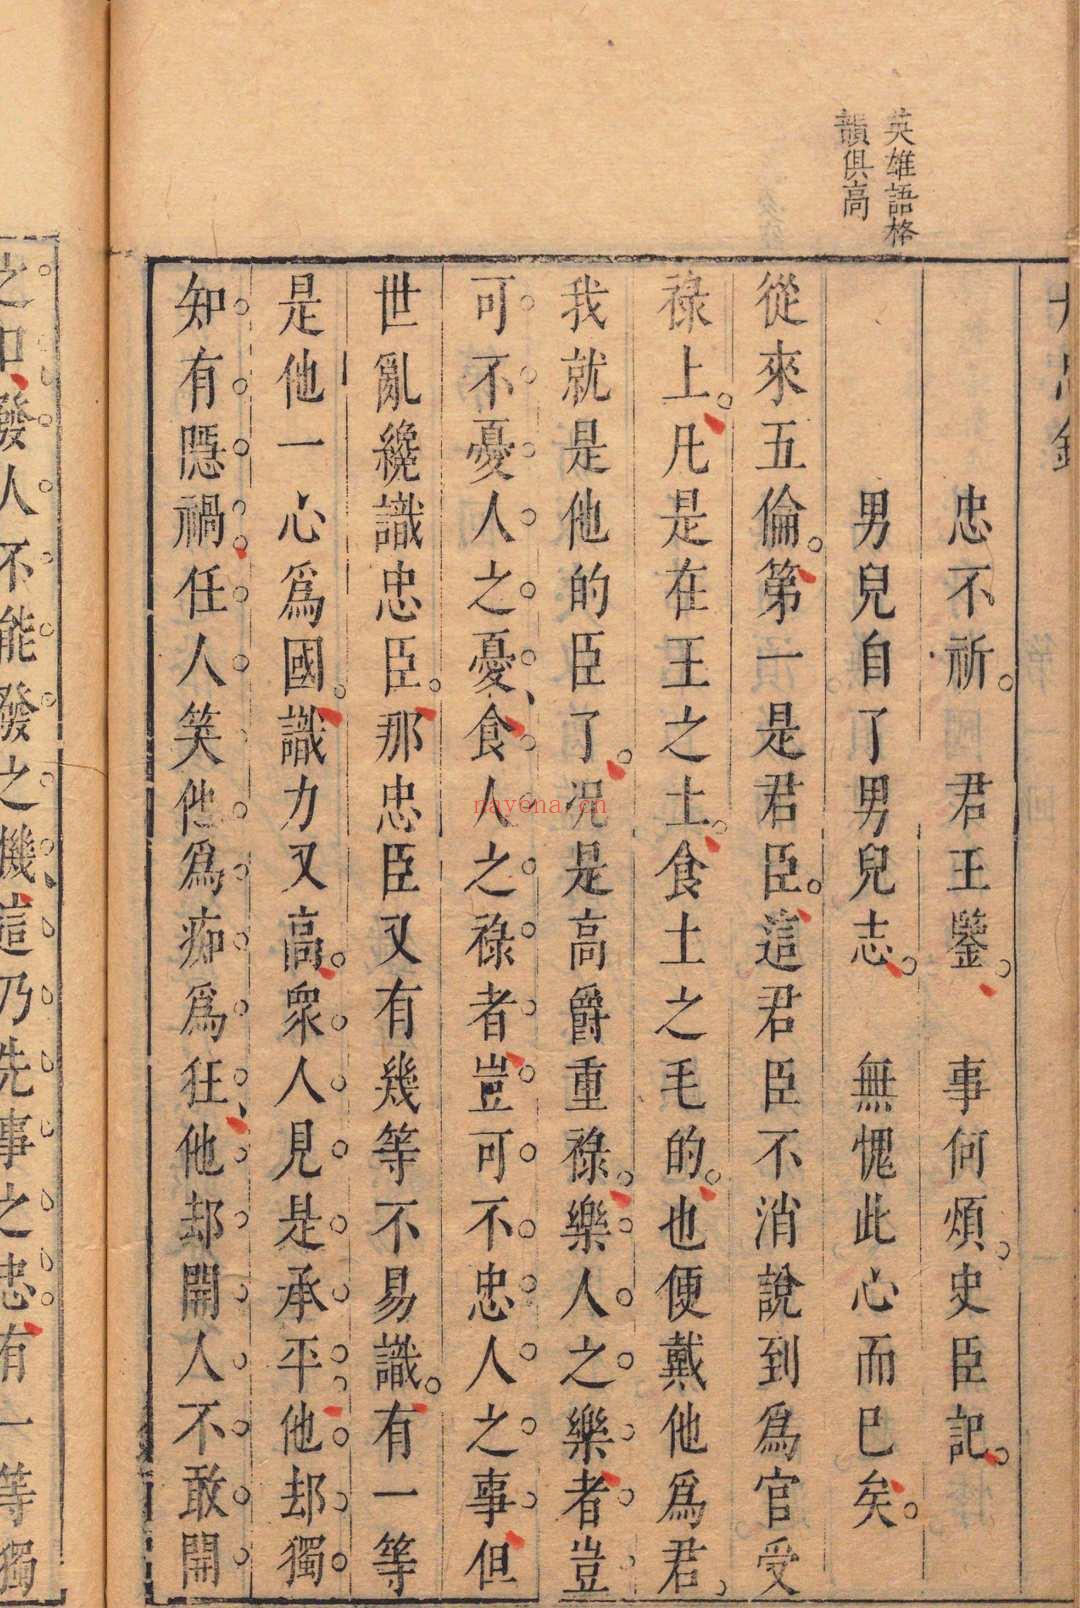 英雄語格
韻俱高
忠不祈。君王鑒。事何煩。史臣記。
男兒自了男兒志。無愧此心而已矣。
從來五倫。第一是君臣。這君臣不消說到為官受
祿上。凡是在王之土。食土之毛的。也便戴他為君。
我就是他的臣了。況是高爵重祿。樂人之樂者。豈
可不憂人之憂、食人之祿者。豈可不忠人之事。但
世亂纔識忠臣。那忠臣又有幾等不易識。有一等
是他一心為國。識力又高。衆人見是承平。他却獨
知有隱禍。任人笑他為痴為狂、他却開人不敢開
之口、發人不能發之機、這乃先事之忠。有一等獨
nayona.cn